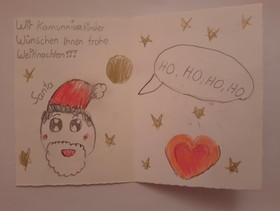 Wir Kommunionkinder
Wünschen Ihnen frohe
Weihnachten!!!
Santa
HO, HO, HO, HO